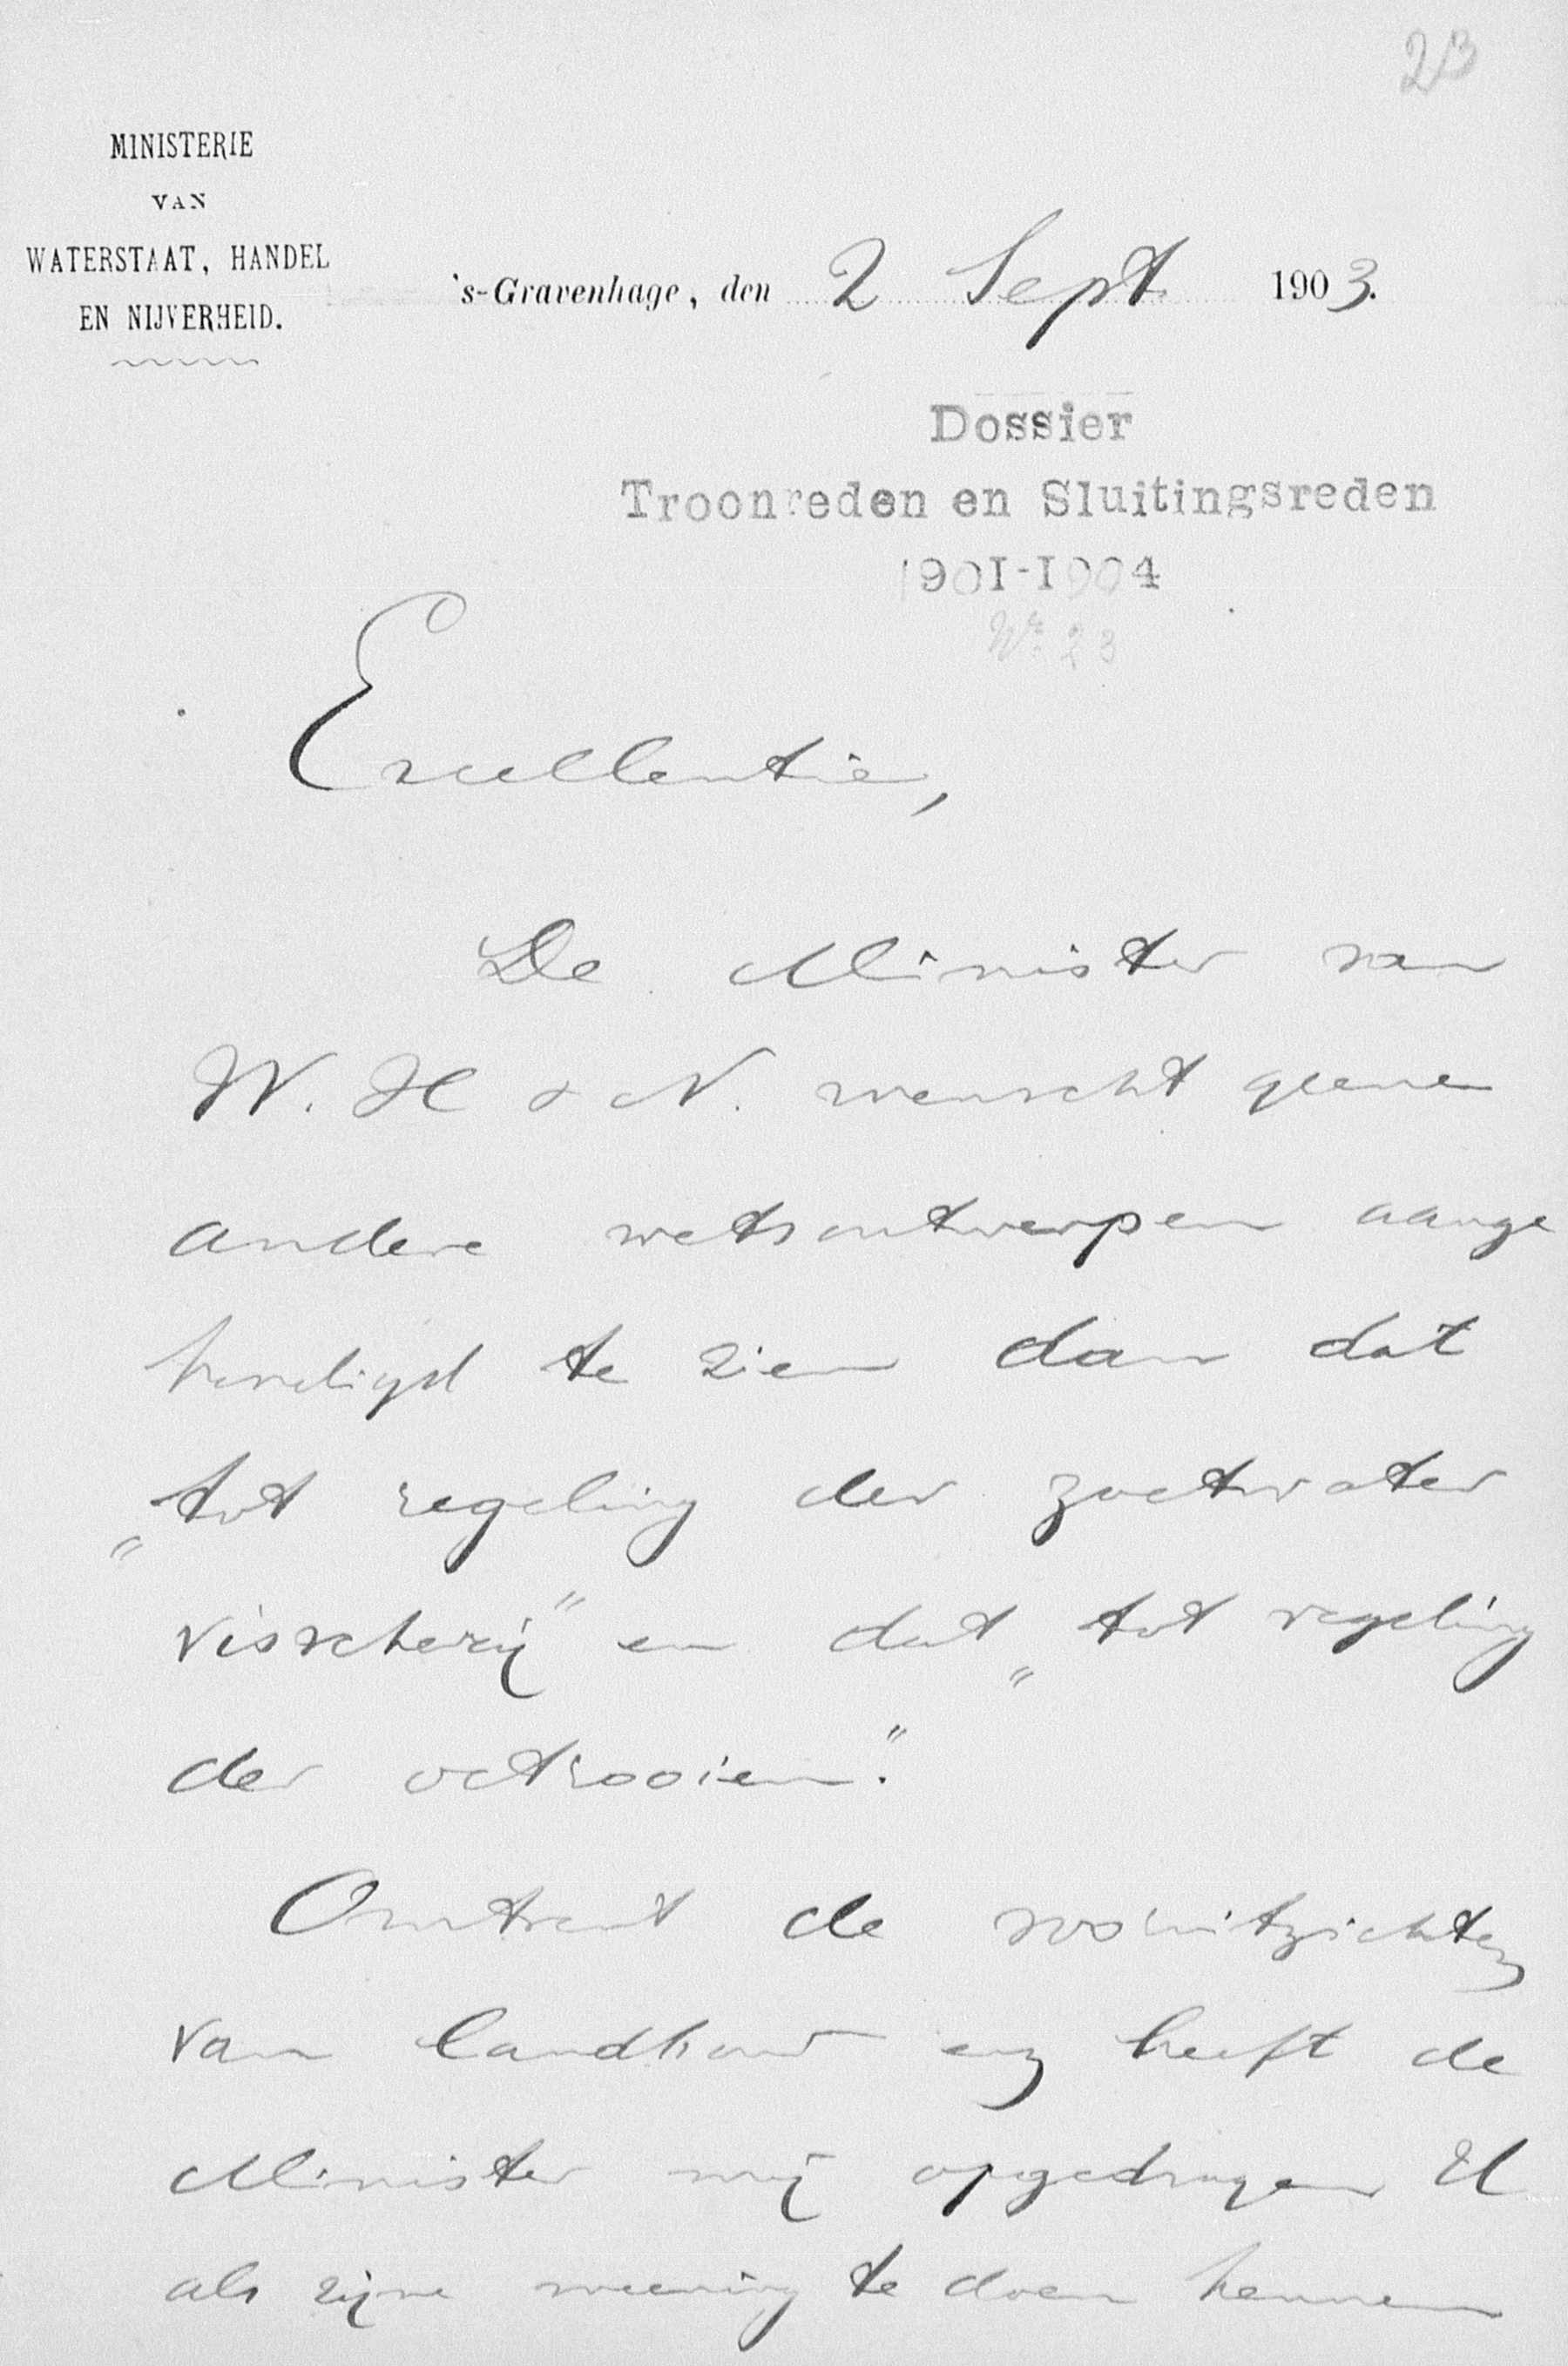 23
MINISTERIE
VAN
WATERSTAAT, HANDEL
EN NIJVERHEID.
's-Gravenhage, den 2 Sept 1903.
Dossier
Troonreden en Sluitingsreden
1901-1904
No. 23
Excellentie,
De Minister van
W. H & N. wenscht geene
andere wetsontwerpen aange
kondigd te zien dan dat
„tot regeling der zoetwater
visscherij" en dat „tot regeling
der octrooien."
Omtrent de vooruitzichten
van landbouw enz heeft de
Minister mij opgedragen U
als zijne meening te doen kennen